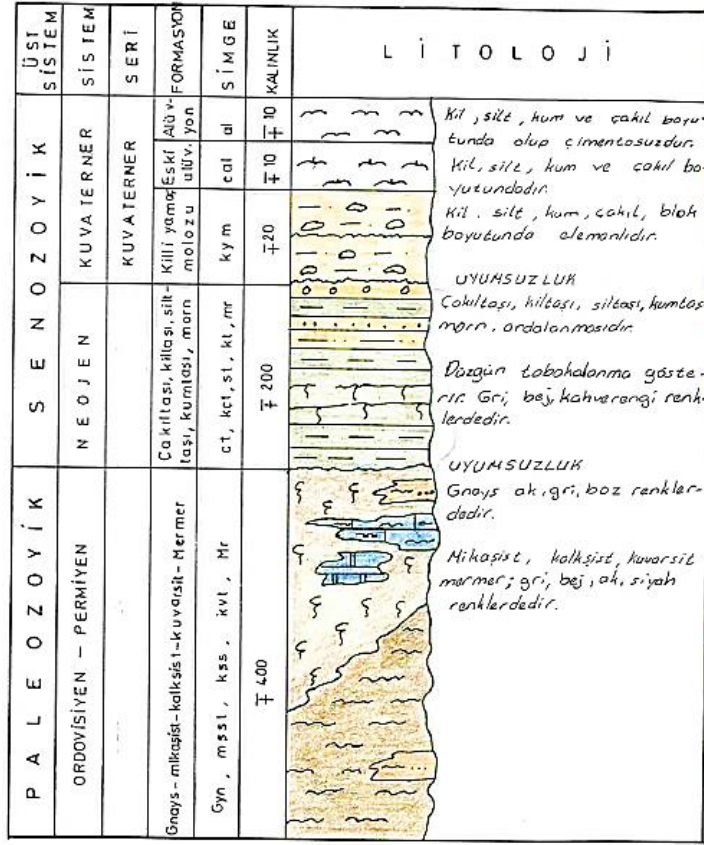 ÜST SİSTEM
SİSTEM
SERİ
FORMASYON
SİMGE
KALINLIK
LİTOLOJİ
SENOZOYİK
KUVATERNER
KUVATERNER
Alüv-
yon
al
∓10
Kil, silt, kum ve çakıl boyu-
tunda olup çimentosuzdur.
Eski
alüv.
eal
∓10
Kil, silt, kum ve çakıl bo-
yutundadır.
Killi yamaç
molozu
kym
∓20
Kil. silt, kum, çakıl, blok
boyutunda elemanlıdır.
UYUMSUZLUK
NEOJEN
Çakıltaşı, kiltaşı, silt-
taşı, kumtaşı, marn
çt, kçt, st, kt, mr
∓200
Çakıltaşı, kiltaşı, siltaşı, kumtaş
marn. ardalanmasıdır.
Düzgün tabakalanma göste-
rir. Gri, bej, kahverengi renk-
lerdedir.
UYUMSUZLUK
PALEOZOYİK
ORDOVİSİYEN - PERMİYEN
Gnays - mikaşist-kalkşist-kuvarsit - Mermer
Gyn, mşst, kşs, kvt, Mr
∓400
Gnays ak, gri, boz renkler-
dedir.
Mikaşist, kalkşist, kuvarsit
mermer; gri, bej, ak, siyah
renklerdedir.